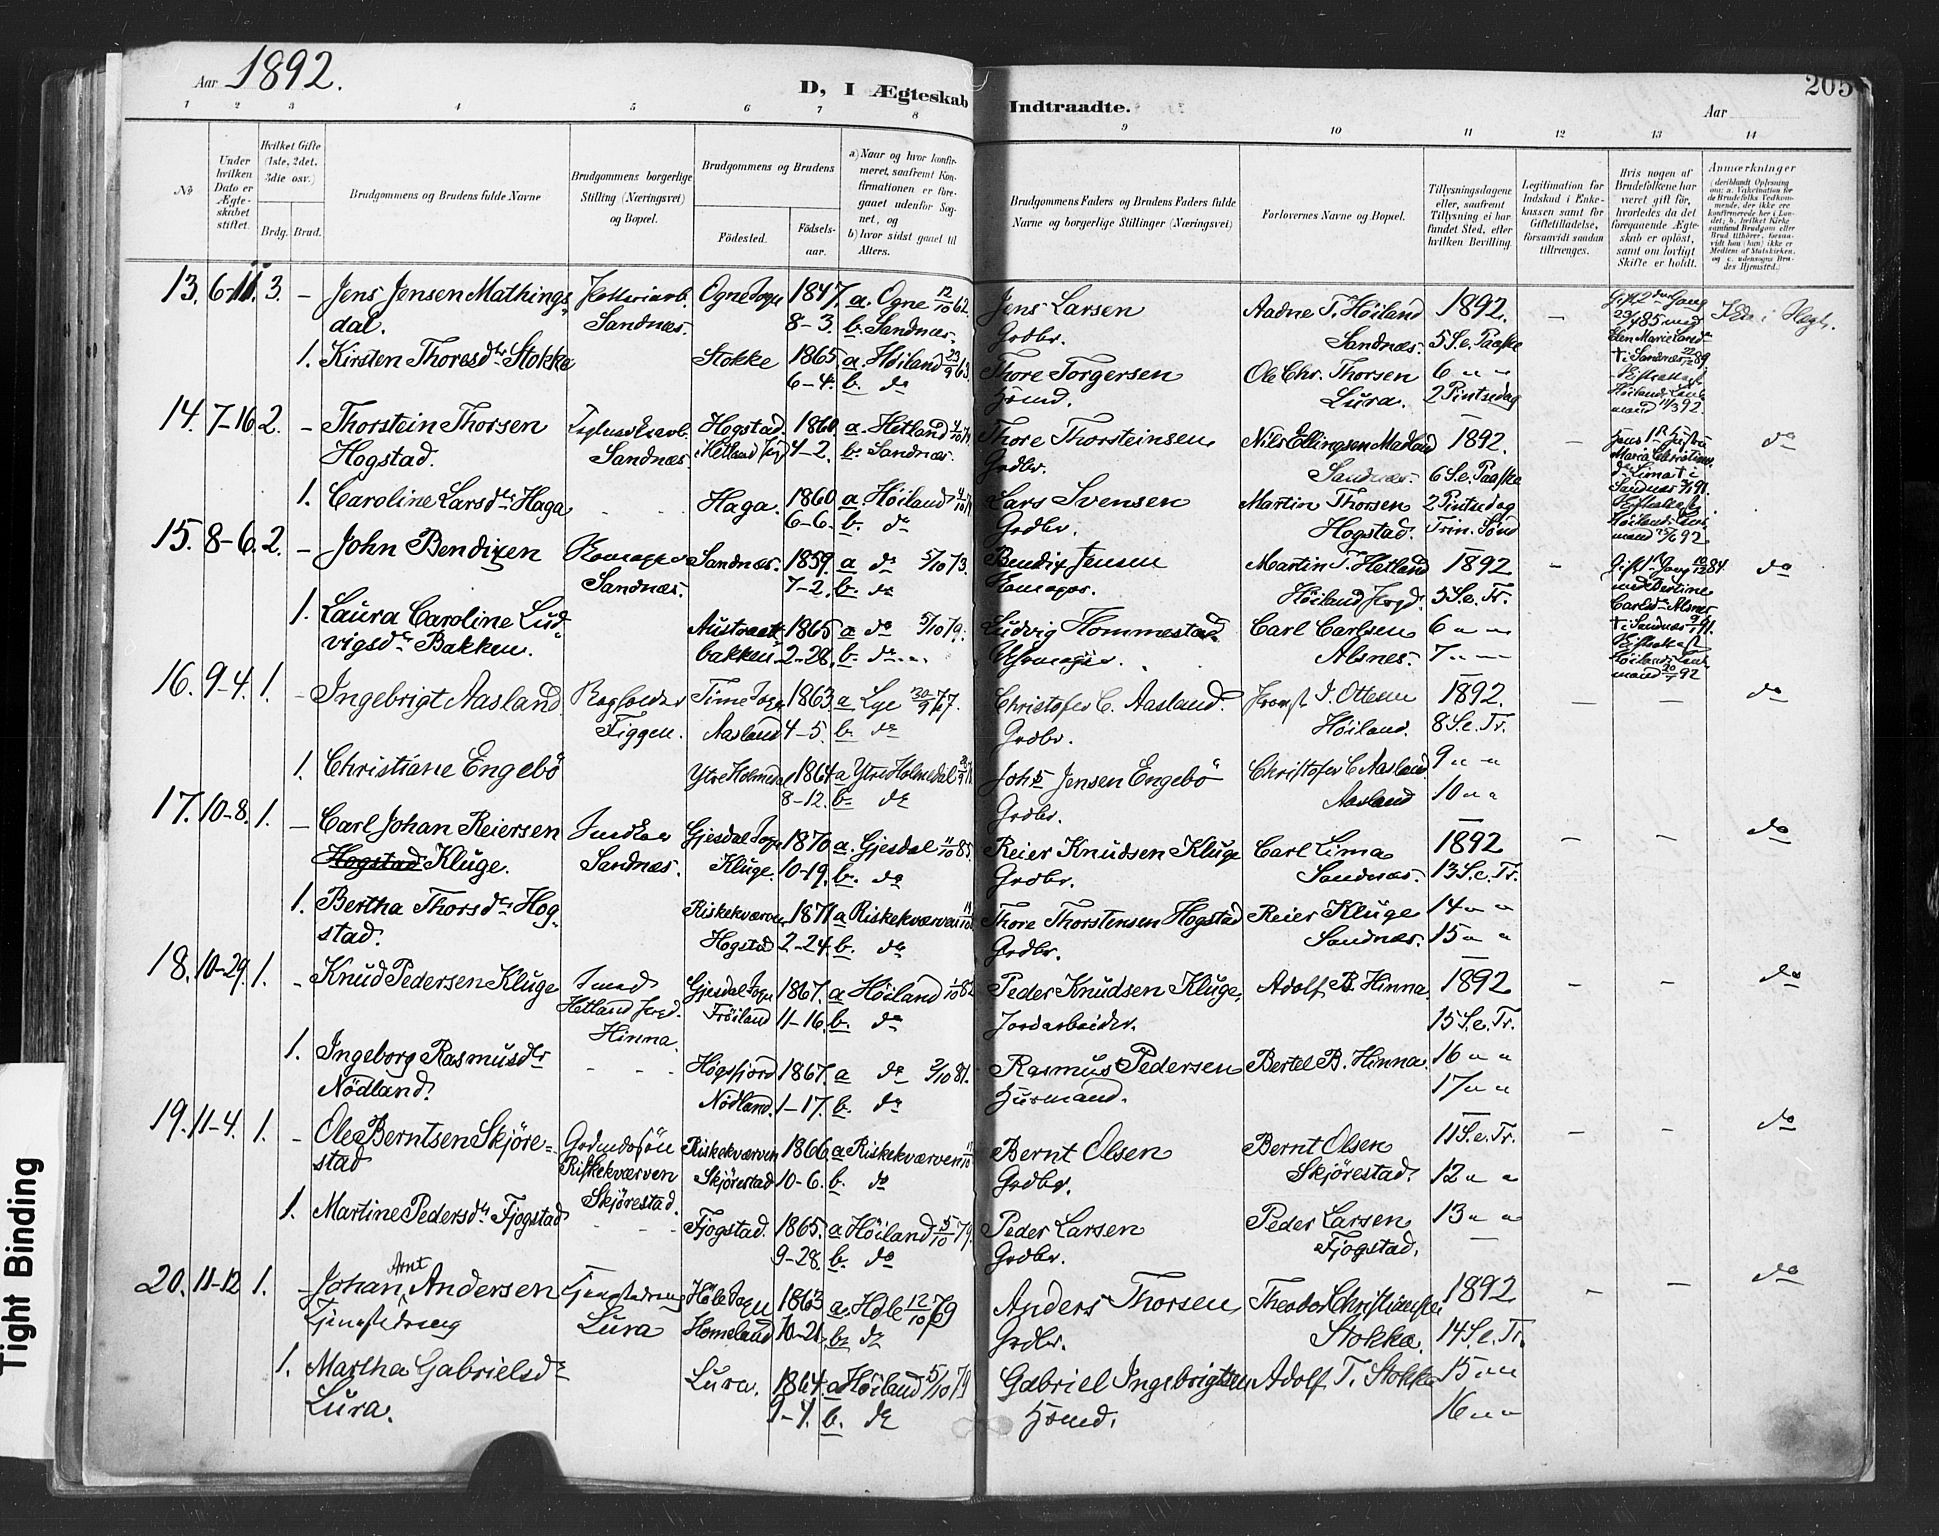 Aar 1892.
D, I Ægteskab Indtraadte.
Aar
205
1 2 3 4 5 6 7 8 9 10 11 12 13 14
No
Under hvilken Dato er Ægteskabet stiftet.
Hvilket Gifte (1ste, 2det, 3die osv.)
Brdg. Brud.
Brudgommens og Brudens fulde Navne
Brudgommens borgerlige Stilling (Næringsvei) og Bopæl.
Brudgommens og Brudens
Fødested.
Fødselsaar.
a) Naar og hvor konfirmeret, saafremt Konfirmationen er foregaaet udenfor Sognet, og
b) hvor sidst gaaet til Alters.
Brudgommens Faders og Brudens Faders fulde Navne og borgerlige Stillinger (Næringsvei)
Forlovernes Navne og Bopæl.
Tillysningsdagene eller, saafremt Tillysning ei har fundet Sted, efter hvilken Bevilling.
Legitimation for Indskud i Enkekassen samt for Giftetilladelse, forsaavidt saadan tiltrænges.
Hvis nogen af Brudefolkene har været gift før, hvorledes da det foregaaende Ægteskab er opløst, samt om lovligt Skifte er holdt.
Anmærkninger
13. 6-11. 3. – Jens Jensen Mathingsdal. Sandnæs. Ogne Sogn 1847. 8-3. a. Ogne 12/10 62. b. Sandnæs. Jens Larsen Grdbr. Aadne T. Höiland Sandnæs. 1892. 5 S. e. Paaske –
1. Kirsten Thoresdtr Stokke Stokke 1865 6-4. a. Höiland b. do Thore Torgersen Hsmd. Ole Chr. Thorsen Lura. 6 " " 2 Pintsedag
14. 7-16. 2. – Thorstein Thorsen Hogstad. Sandnæs. Hogstad. 1860. 4-2. a. Hetland b. Sandnæs. Thore Thorsteinsen Grdbr. Nils Ellingsen Madland Sandnæs. 1892. 6 S. e. Paaske – do
1. Caroline Larsdtr Haga - - Haga. 1860 6-6. a. Höiland b. do Lars Svensen Grdbr. Martin Thorsen Hogstad. 2 Pintsedag Trin. Sönd
15. 8-6. 2. – John Bendixen Sandnæs. Sandnæs. 1859. 7-2. a do 5/10 73. b. do Bendix Jensen Martin T. Hetland 1892 5 S. e. Tr. – do
1. Laura Caroline Ludvigsdtr Bakken. Austraatbakken 1865 2-28. a do 5/10 79. b. do Ludvig Hommestad Carl Carlsen Alsnes. 6 " – 7 " –
16. 9-4. 1. – Ingebrigt Aasland. Figgen. Time Sogn Aasland 1863. 4-5. a. Lye b. do Christofer C. Aasland. Grdbr. J. Ottesen Höiland. 1892. 8 S. e. Tr. – – do
1. Christiane Engebö Ytre Holmedal 1864 8-12. a Ytre Holmedal b. do John Jensen Engebö Grdbr. Christofer C Aasland Aasland 9 " " 10 " "
17. 10-8. 1. – Carl Johan Reiersen Hogstad Kluge. Sandnæs. Gjesdal Sogn Kluge. 1870 10-19. a. Gjesdal b. do Reier Knudsen Kluge Grdbr. Carl Lima Sandnæs. 1892 13 S. e. Tr. – – do
1. Bertha Thorsdtr Hogstad. Riskekværven Hogstad 1871 2-24. a Riskekværven b. do Thore Thorstensen Hogstad Grdbr. Reier Kluge Sandnæs. 14 " " 15 " "
18. 10-29. 1. – Knud Pedersen Kluge Smed Hetland Hinna. Gjesdal Sogn Fröiland 1867. 11-16. a Höiland b. do Peder Knudsen Kluge. Jordarbeider. Adolf B. Hinna. 1892 15 S. e. Tr. – – do
1. Ingeborg Rasmusdtr Nödland. - - - Högsfjord Nödland. 1867. 1-17. a do 2/10 81. b. do Rasmus Pedersen Husmand. Bertel B. Hinna. 16 " " 17 " "
19. 11-4. 1. – Ole Berntsen Skjörestad Riskekværven Skjörestad. Riskekværven Skjörestad 1866. 10-6. a. Riskekværven b. do Bernt Olsen Grdbr. Bernt Olsen Skjörestad. 11 S. e. Tr. 12 " " – – do
1. Martine Pedersdtr Fjogstad - - Fjogstad. 1865. 9-28. a Höiland 5/10 79. b. do Peder Larsen Grdbr. Peder Larsen Fjogstad. 13 " "
20. 11-12. 1. – Johan Arnt Andersen Tjenestedreng Tjenestedreng Lura Höle Sogn Homeland 1863 10-21. a. Höle 12/10 79 b. do Anders Thorsen Grdbr. Theodor Stokka. 1892 14 S. e. Tr. – – do
1. Martha Gabrielsdtr Lura. Lura. 1864. 9-4. a Höiland 5/10 79 b. do Gabriel Ingebrigtsen Hsmd. Adolf T. Stokka 15 " " 16 " "
Tight Binding